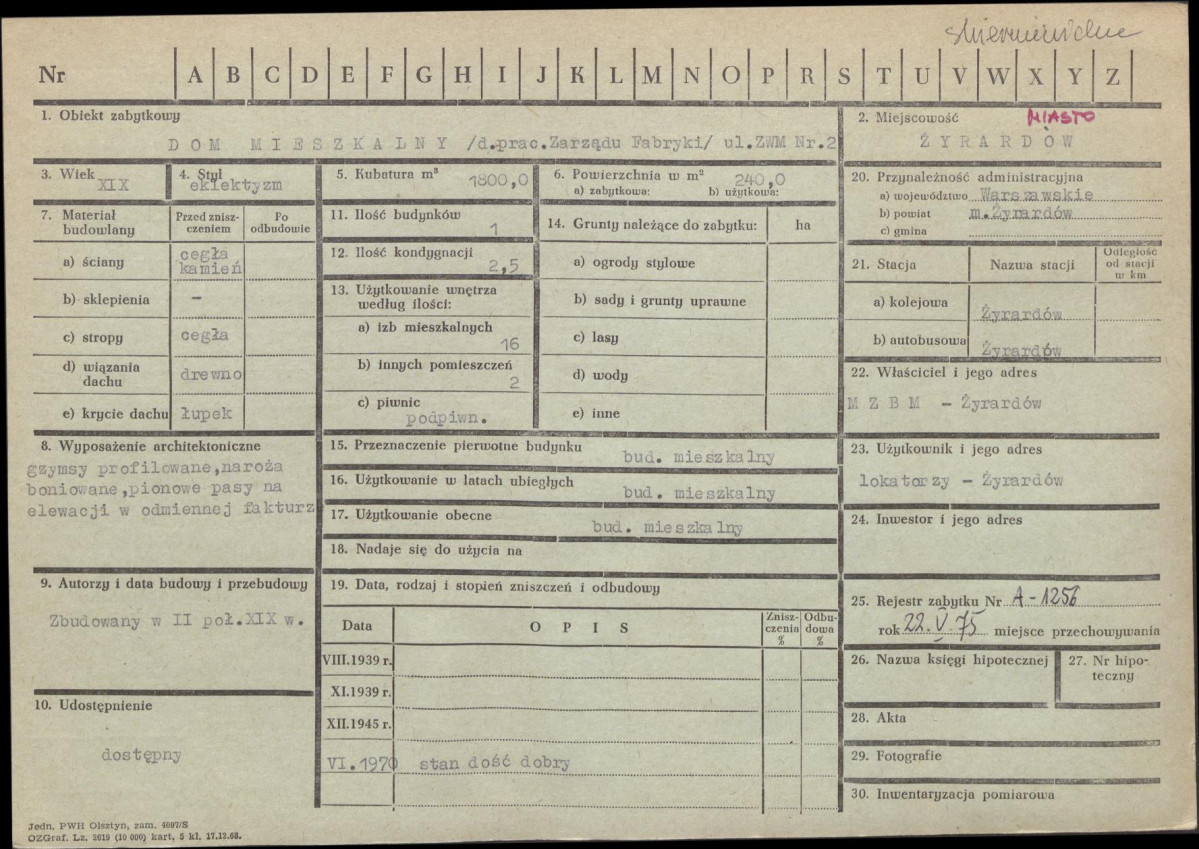 skierniewickie
Nr A B C D E F G H I J K L M N O P R S T U V W X Y Z
1. Obiekt zabytkowy
DOM MIESZKALNY /d.prac.Zarządu Fabryki/ ul.ZWM Nr.2
2. Miejscowość MIASTO
ŻYRARDÓW
3. Wiek
XIX
4. Styl
eklektyzm
5. Kubatura m³
1800,0
6. Powierzchnia w m²
240,0
a) zabytkowa: b) użytkowa:
20. Przynależność administracyjna
a) województwo Warszawskie
b) powiat m.Żyrardów
c) gmina
7. Materiał budowlany
Przed znisz-
czeniem
Po
odbudowie
a) ściany
cegła
kamień
b) sklepienia –
c) stropy cegła
d) wiązania
dachu
drewno
e) krycie dachu łupek
11. Ilość budynków
1
12. Ilość kondygnacji
2,5
13. Użytkowanie wnętrza
według ilości:
a) izb mieszkalnych
16
b) innych pomieszczeń
2
c) piwnic
podpiwn.
14. Grunty należące do zabytku: ha
a) ogrody stylowe
b) sady i grunty uprawne
c) lasy
d) wody
e) inne
21. Stacja Nazwa stacji
Odległość
od stacji
w km
a) kolejowa
Żyrardów
b) autobusowa
Żyrardów
22. Właściciel i jego adres
M Z B M – Żyrardów
8. Wyposażenie architektoniczne
gzymsy profilowane,naroża
boniowane,pionowe pasy na
elewacji w odmiennej fakturz
15. Przeznaczenie pierwotne budynku
bud. mieszkalny
16. Użytkowanie w latach ubiegłych
bud. mieszkalny
17. Użytkowanie obecne
bud. mieszkalny
18. Nadaje się do użycia na
23. Użytkownik i jego adres
lokatorzy – Żyrardów
24. Inwestor i jego adres
9. Autorzy i data budowy i przebudowy
Zbudowany w II poł.XIX w.
10. Udostępnienie
dostępny
19. Data, rodzaj i stopień zniszczeń i odbudowy
Data
O P I S
Znisz-
czenia
%
Odbu-
dowa
%
VIII.1939 r.
XI.1939 r.
XII.1945 r.
VI.1970 stan dość dobry
25. Rejestr zabytku Nr A-1256
rok 22.V.75 miejsce przechowywania
26. Nazwa księgi hipotecznej
27. Nr hipo-
teczny
28. Akta
29. Fotografie
30. Inwentaryzacja pomiarowa
Jedn. PWH Olsztyn, zam. 4097/S
OZGraf. Lz. 2619 (10 000) kart, 5 kl. 17.12.68.